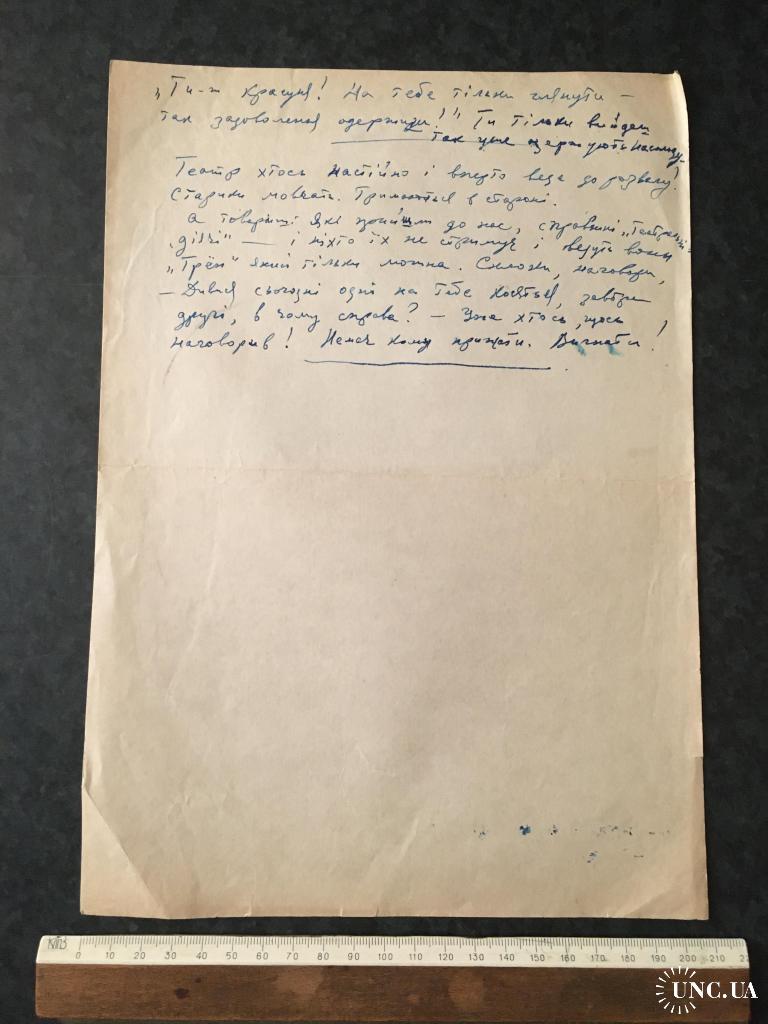 „Ти-ж красуня! На тебе тільки глянути —
так задоволення одержиш!" Ти тільки вийдеш
так уже одержують насолоду
Театр хтось настійно і вперто веде до розвалу!
Старики мовчать. Тримаються в стороні.
А товариші які прийшли до нас, справжні „Театральні
діячі" — і ніхто їх не стримує і ведуть вони
„Трёп" який тільки можна. Сплетки, наговори,
— Дивися сьогодні одні на тебе косяться, завтра
другі, в чому справа? — Уже хтось, щось
наговорив! Немає кому прижати. Вигнати!
КТПЗ
0 10 20 30 40 50 60 70 80 90 100 110 120 130 140 150 160 170 180 190 200 210
UNC.UA